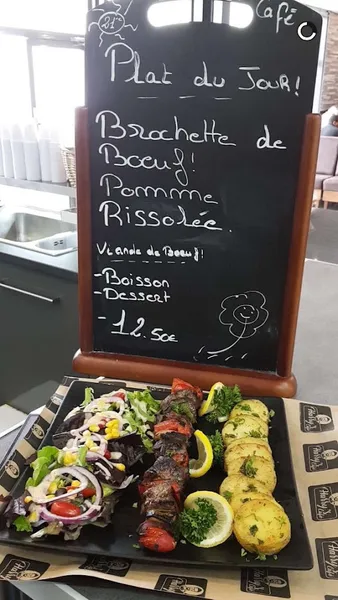 21°
Café
Plat du Jour!
Brochette de
Boeuf!
Pomme
Rissolée.
Viande de Boeuf!
- Boisson
- Dessert
- 12.50€